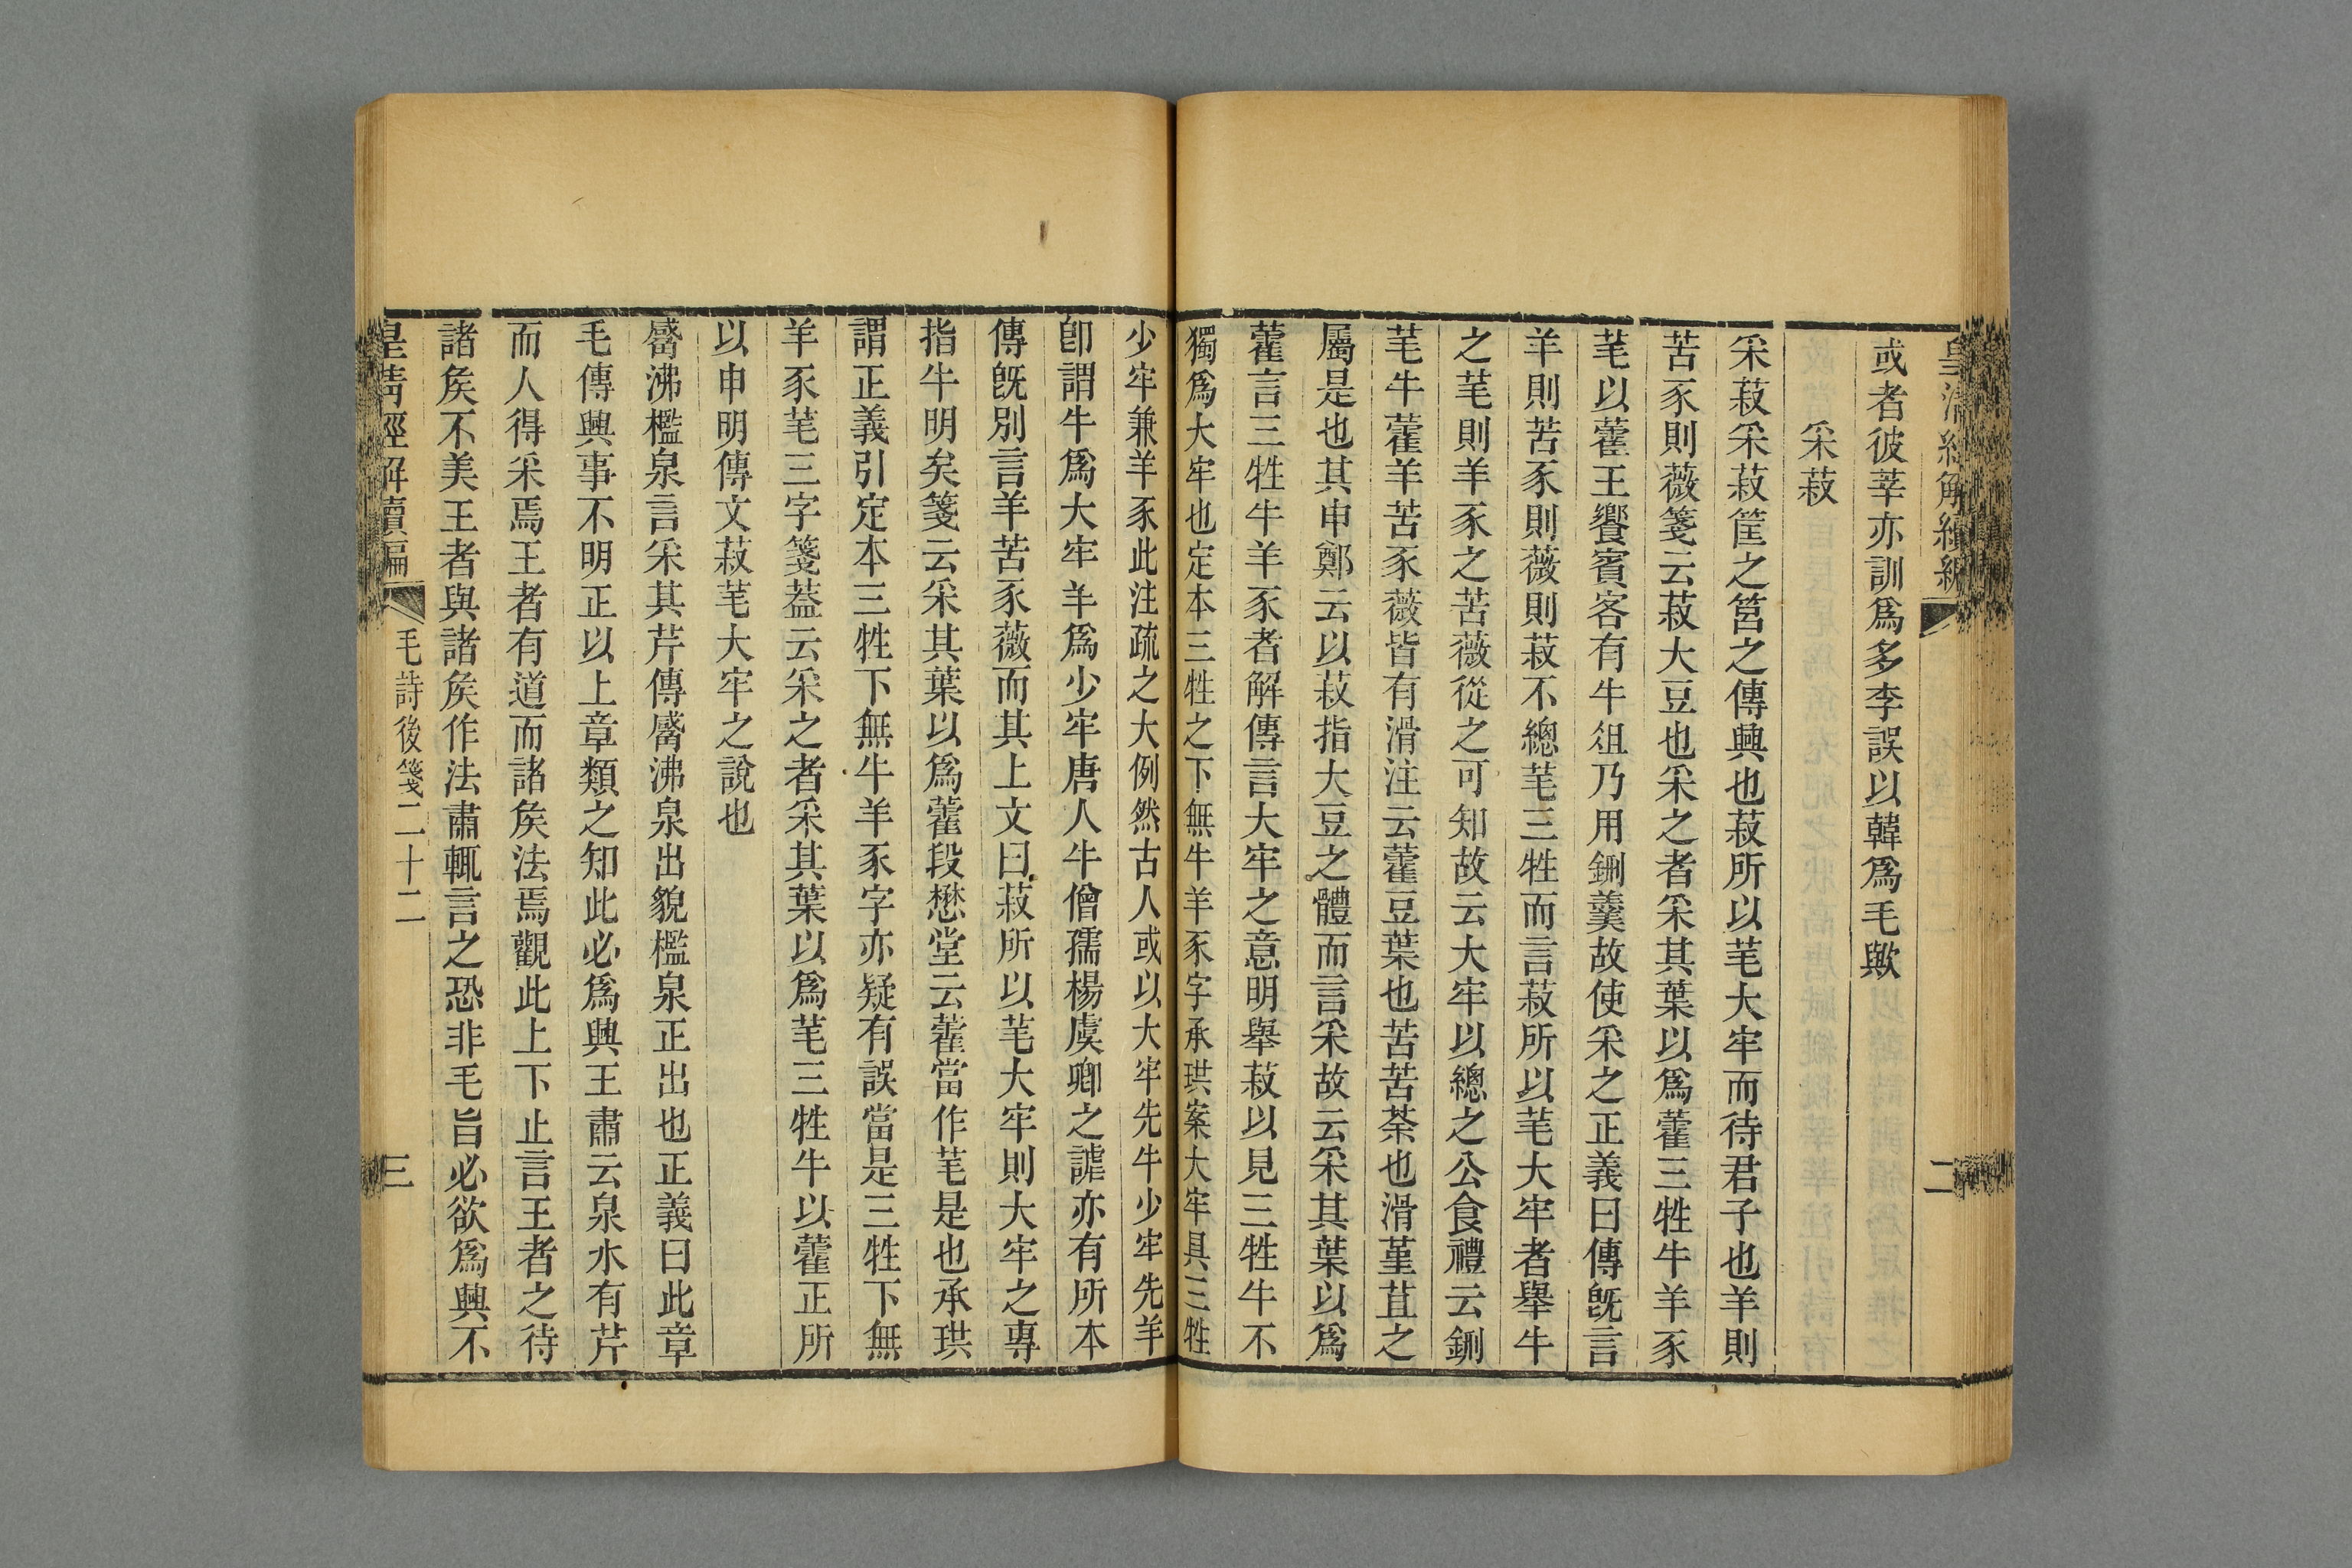 皇清經解續編
二
或者彼莘亦訓爲多李誤以韓爲毛歟
采菽
采菽采菽筐之筥之傳興也菽所以芼大牢而待君子也羊則
苦豕則薇箋云菽大豆也采之者采其葉以爲藿三牲牛羊豕
芼以藿王饗賓客有牛俎乃用鉶羹故使采之正義曰傳旣言
羊則苦豕則薇則菽不總芼三牲而言菽所以芼大牢者舉牛
之芼則羊豕之苦薇從之可知故云大牢以總之公食禮云鉶
芼牛藿羊苦豕薇皆有滑注云藿豆葉也苦苦荼也滑堇苴之
屬是也其申鄭云以菽指大豆之體而言采故云采其葉以爲
藿言三牲牛羊豕者解傳言大牢之意明舉菽以見三牲牛不
獨爲大牢也定本三牲之下無牛羊豕字承珙案大牢具三牲
少牢兼羊豕此注疏之大例然古人或以大牢先牛少牢先羊
卽謂牛爲大牢羊爲少牢唐人牛僧孺楊虞卿之謔亦有所本
傳旣別言羊苦豕薇而其上文曰菽所以芼大牢則大牢之專
指牛明矣箋云采其葉以爲藿段懋堂云藿當作芼是也承珙
謂正義引定本三牲下無牛羊豕字亦疑有誤當是三牲下無
羊豕芼三字箋葢云采之者采其葉以爲芼三牲牛以藿正所
以申明傳文菽芼大牢之說也
觱沸檻泉言采其芹傳觱沸泉出貌檻泉正出也正義曰此章
毛傳興事不明正以上章類之知此必爲興王肅云泉水有芹
而人得采焉王者有道而諸矦法焉觀此上下止言王者之待
諸矦不美王者與諸矦作法肅輒言之恐非毛旨必欲爲興不
皇清經解續編
毛詩後箋二十二
三